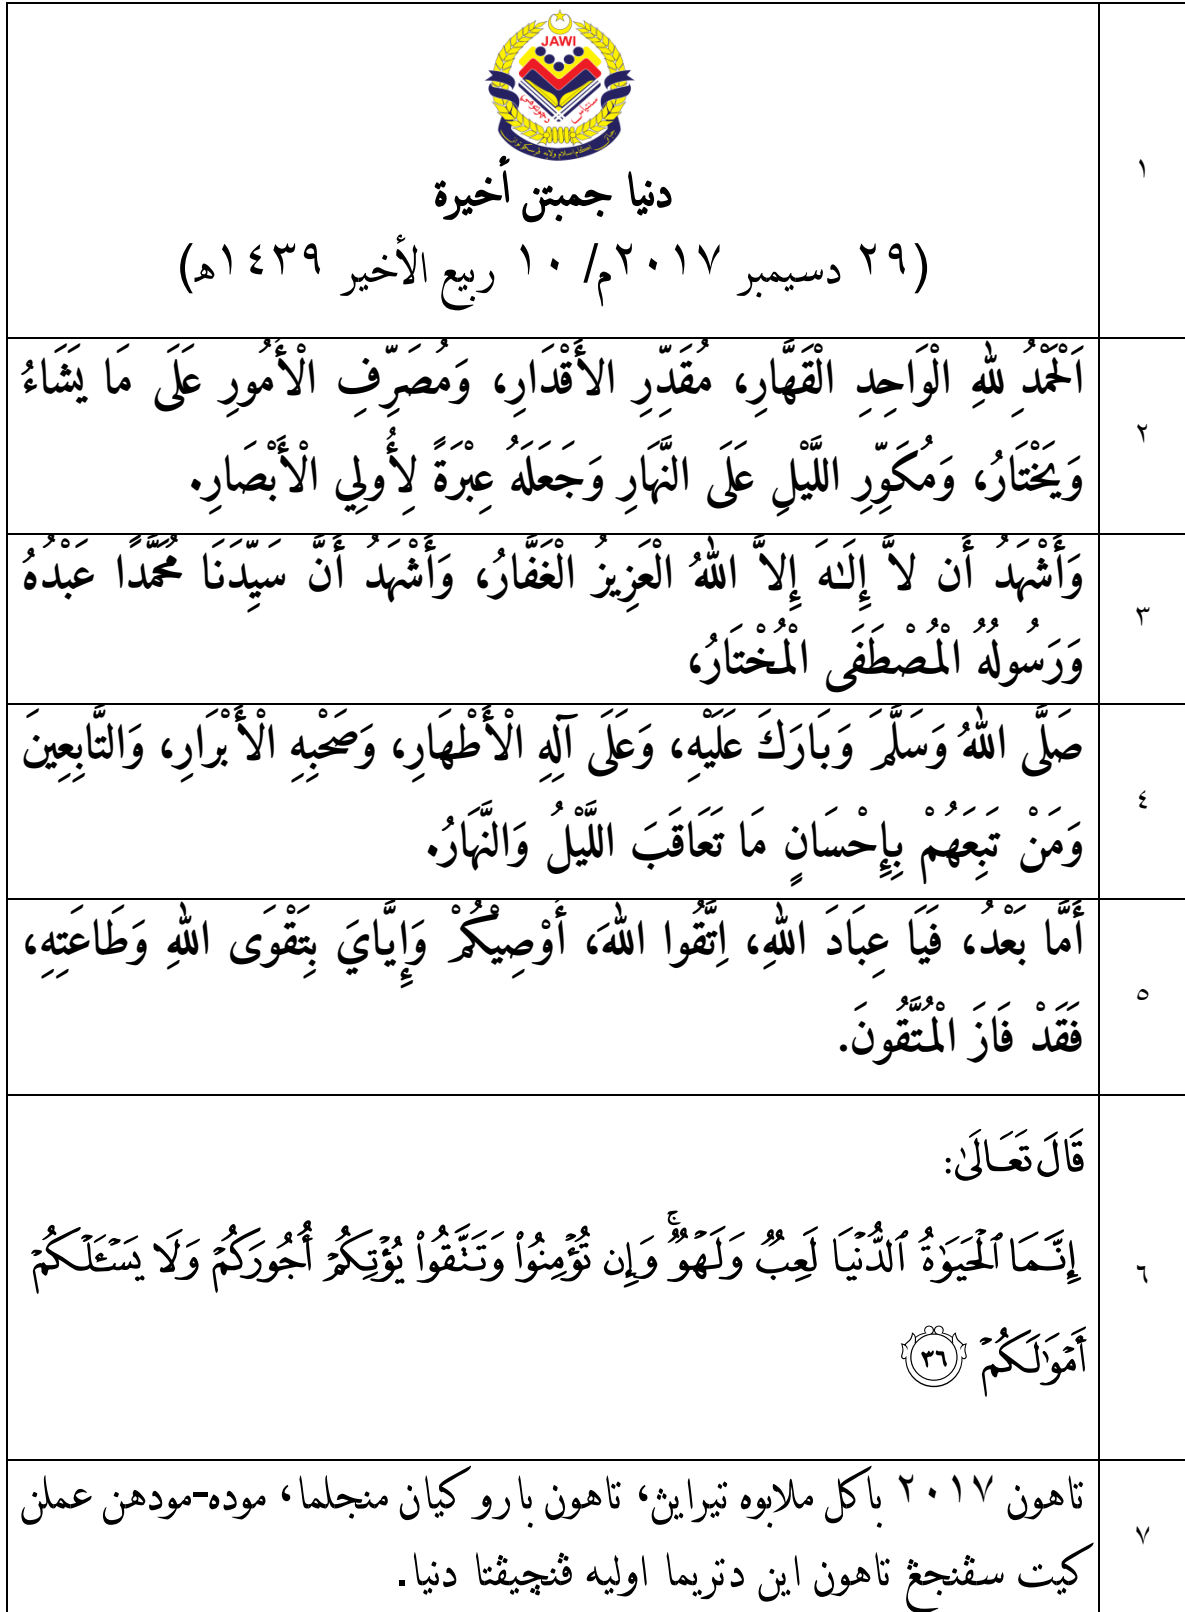 JAWI
دنيا جمبتن أخيرة
(٢٩ دسيمبر ٢٠١٧م/ ١٠ ربيع الأخير ١٤٣٩هـ)
١
اَلْحَمْدُ للهِ الْوَاحِدِ الْقَهَّارِ، مُقَدِّرِ الأَقْدَارِ، وَمُصَرِّفِ الْأُمُورِ عَلَى مَا يَشَاءُ
وَيَخْتَارُ، وَمُكَوِّرِ اللَّيْلِ عَلَى النَّهَارِ وَجَعَلَهُ عِبْرَةً لِأُولِي الْأَبْصَارِ.
٢
وَأَشْهَدُ أَن لاَّ إِلَـٰهَ إِلاَّ اللهُ الْعَزِيزُ الْغَفَّارُ، وَأَشْهَدُ أَنَّ سَيِّدَنَا مُحَمَّدًا عَبْدُهُ
وَرَسُولُهُ الْمُصْطَفَى الْمُخْتَارُ،
٣
صَلَّى اللهُ وَسَلَّمَ وَبَارَكَ عَلَيْهِ، وَعَلَى آلِهِ الْأَطْهَارِ، وَصَحْبِهِ الْأَبْرَارِ، وَالتَّابِعِينَ
وَمَنْ تَبِعَهُمْ بِإِحْسَانٍ مَا تَعَاقَبَ اللَّيْلُ وَالنَّهَارُ.
٤
أَمَّا بَعْدُ، فَيَا عِبَادَ اللهِ، اِتَّقُوا اللهَ، أُوْصِيْكُمْ وَإِيَّايَ بِتَقْوَى اللهِ وَطَاعَتِهِ،
فَقَدْ فَازَ الْمُتَّقُونَ.
٥
قَالَ تَعَالَىٰ:
إِنَّمَا ٱلْحَيَوٰةُ ٱلدُّنْيَا لَعِبٌ وَلَهْوٌ ۚ وَإِن تُؤْمِنُوا۟ وَتَتَّقُوا۟ يُؤْتِكُمْ أُجُورَكُمْ وَلَا يَسْـَٔلْكُمْ
أَمْوَٰلَكُمْ ٣٦
٦
تاهون ٢٠١٧ باكل ملابوه تيرايڽ، تاهون بارو كيان منجلما، موده-مودهن عملن
كيت سڤنجڠ تاهون اين دتريما اوليه ڤنچيڤتا دنيا.
٧